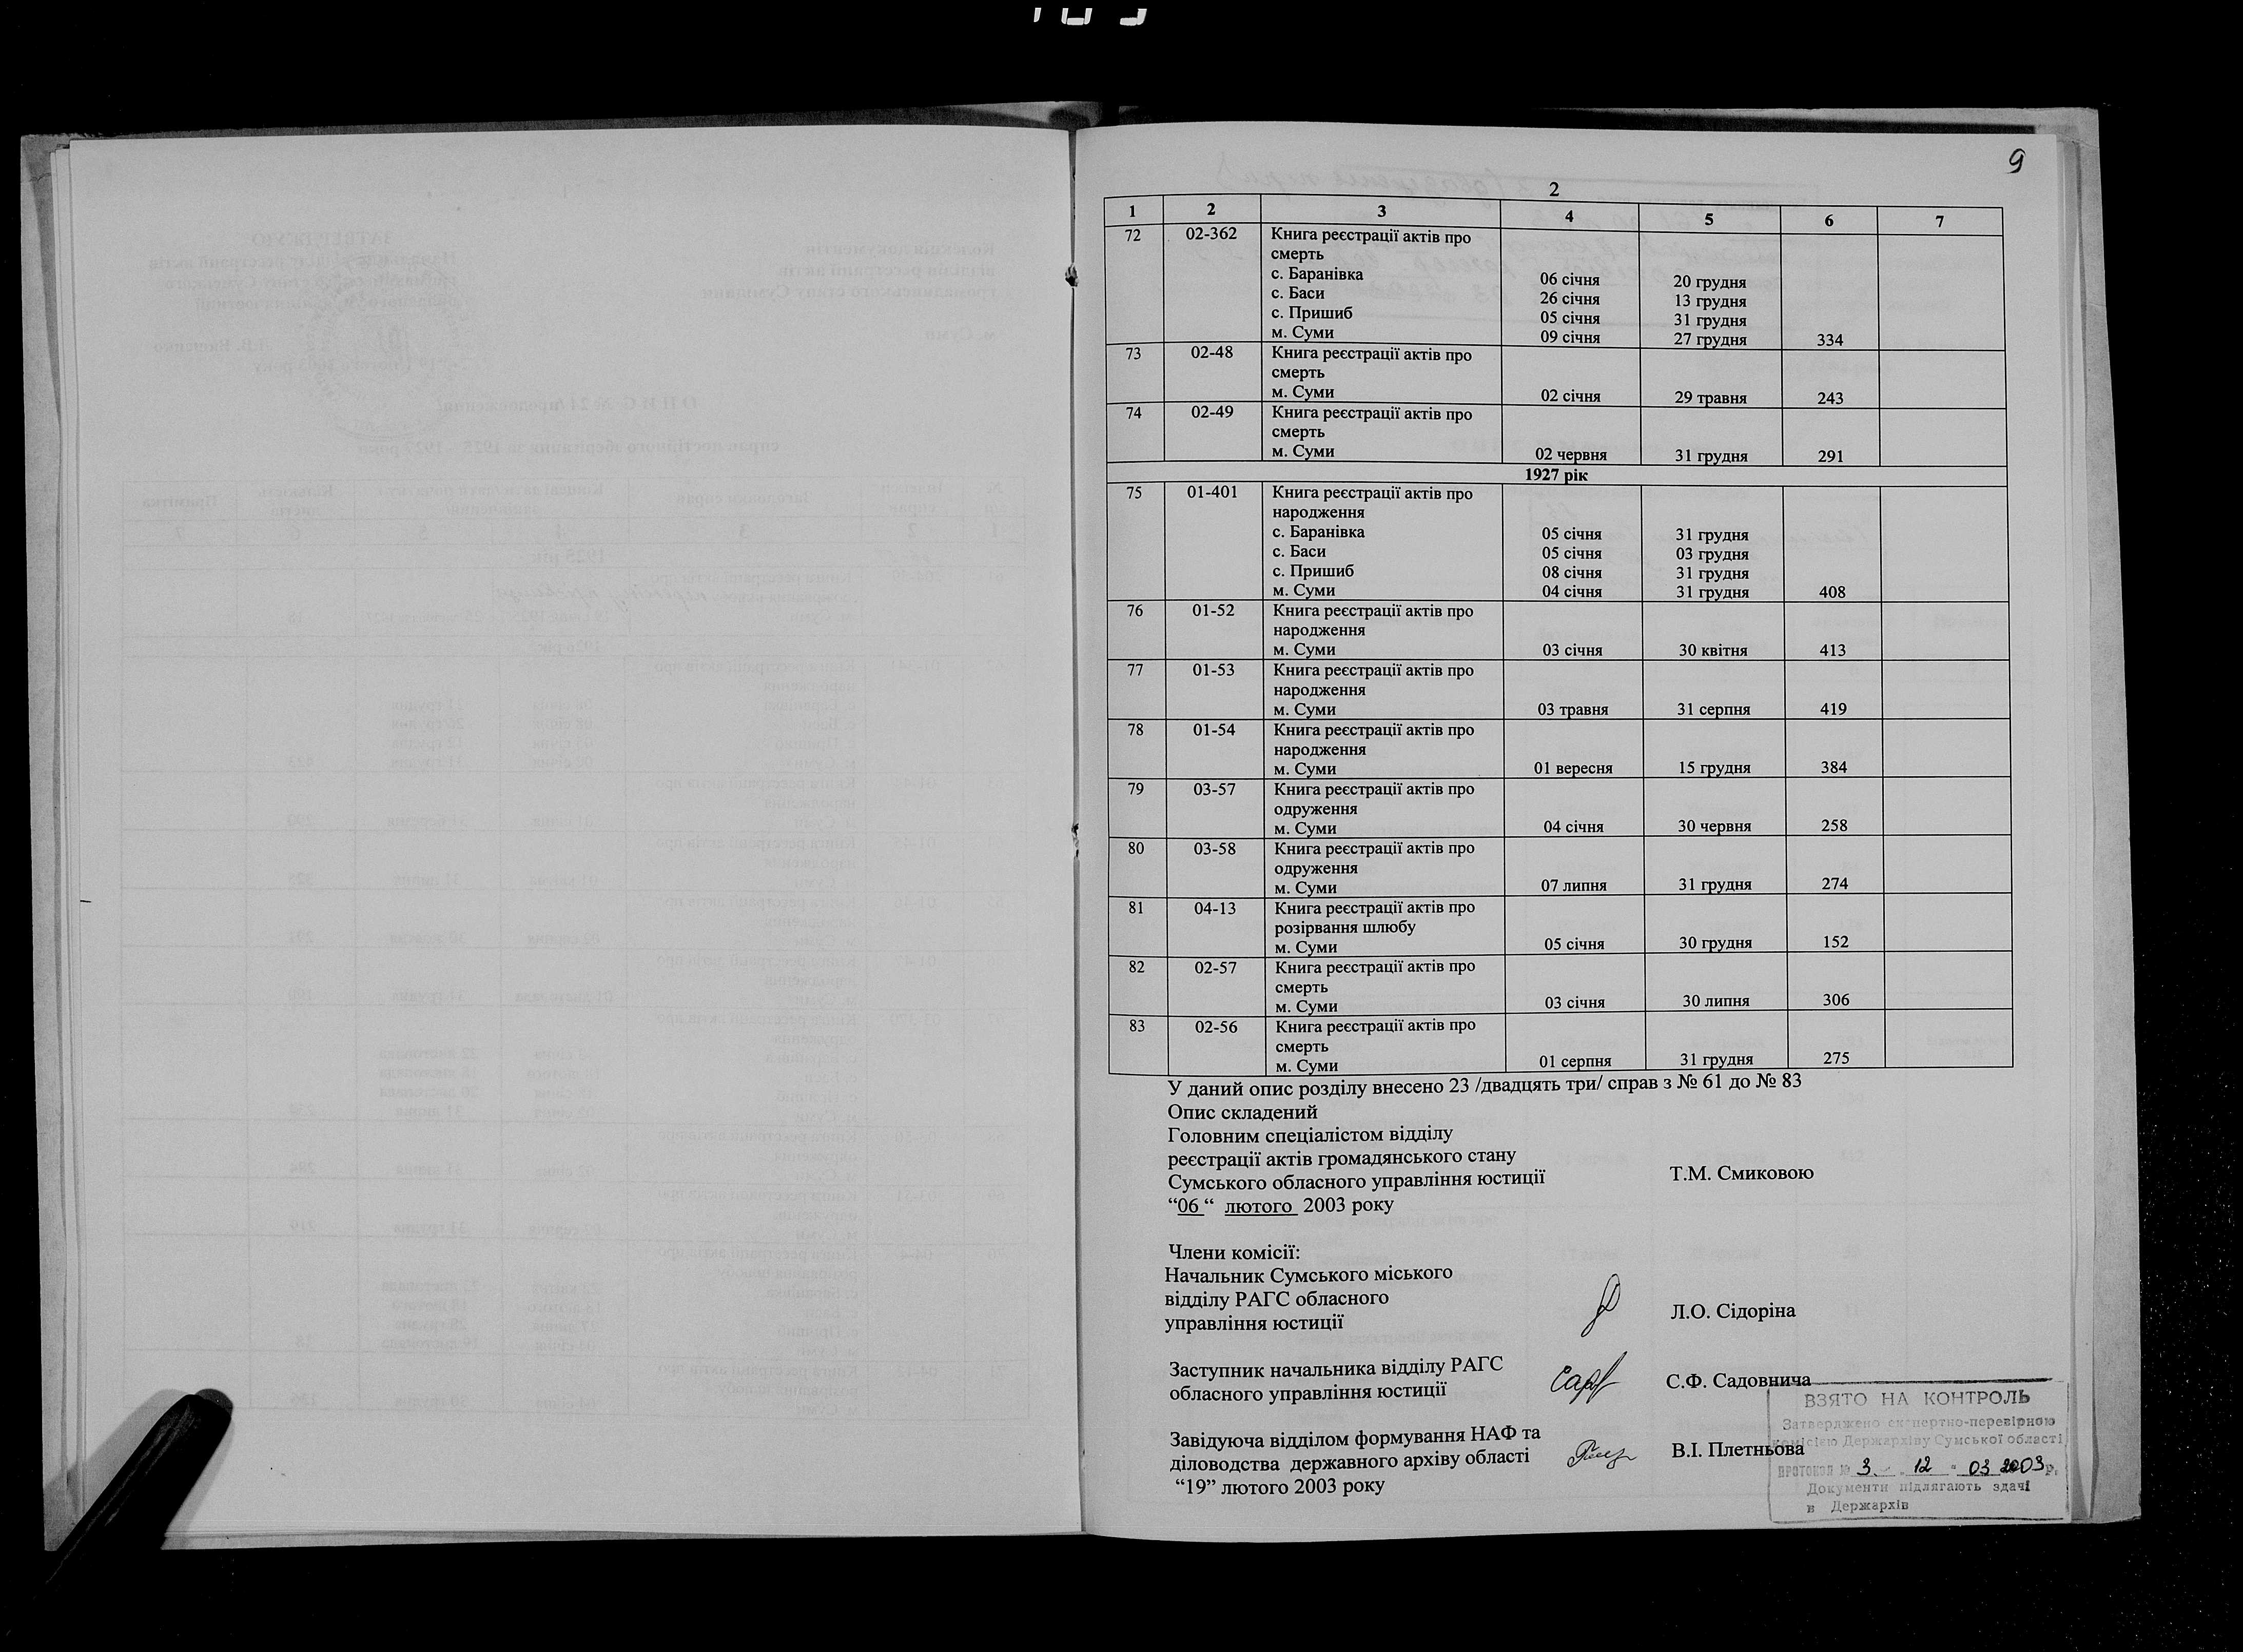 9
2
1 2 3 4 5 6 7
72 02-362 Книга реєстрації актів про
смерть
с. Баранівка 06 січня 20 грудня
с. Баси 26 січня 13 грудня
с. Пришиб 05 січня 31 грудня
м. Суми 09 січня 27 грудня 334
73 02-48 Книга реєстрації актів про
смерть
м. Суми 02 січня 29 травня 243
74 02-49 Книга реєстрації актів про
смерть
м. Суми 02 червня 31 грудня 291
1927 рік
75 01-401 Книга реєстрації актів про
народження
с. Баранівка 05 січня 31 грудня
с. Баси 05 січня 03 грудня
с. Пришиб 08 січня 31 грудня
м. Суми 04 січня 31 грудня 408
76 01-52 Книга реєстрації актів про
народження
м. Суми 03 січня 30 квітня 413
77 01-53 Книга реєстрації актів про
народження
м. Суми 03 травня 31 серпня 419
78 01-54 Книга реєстрації актів про
народження
м. Суми 01 вересня 15 грудня 384
79 03-57 Книга реєстрації актів про
одруження
м. Суми 04 січня 30 червня 258
80 03-58 Книга реєстрації актів про
одруження
м. Суми 07 липня 31 грудня 274
81 04-13 Книга реєстрації актів про
розірвання шлюбу
м. Суми 05 січня 30 грудня 152
82 02-57 Книга реєстрації актів про
смерть
м. Суми 03 січня 30 липня 306
83 02-56 Книга реєстрації актів про
смерть
м. Суми 01 серпня 31 грудня 275
У даний опис розділу внесено 23 /двадцять три/ справ з № 61 до № 83
Опис складений
Головним спеціалістом відділу
реєстрації актів громадянського стану
Сумського обласного управління юстиції Т.М. Смиковою
“06 “ лютого 2003 року
Члени комісії:
Начальник Сумського міського
відділу РАГС обласного
управління юстиції Л.О. Сідоріна
Заступник начальника відділу РАГС
обласного управління юстиції С.Ф. Садовнича
Завідуюча відділом формування НАФ та
діловодства державного архіву області В.І. Плетньова
“19” лютого 2003 року
ВЗЯТО НА КОНТРОЛЬ
Затверджено експертно-перевірною
комісією Держархіву Сумської області
протокол № 3 „ 12 “ 03 2003 р.
Документи підлягають здачі
в Держархів